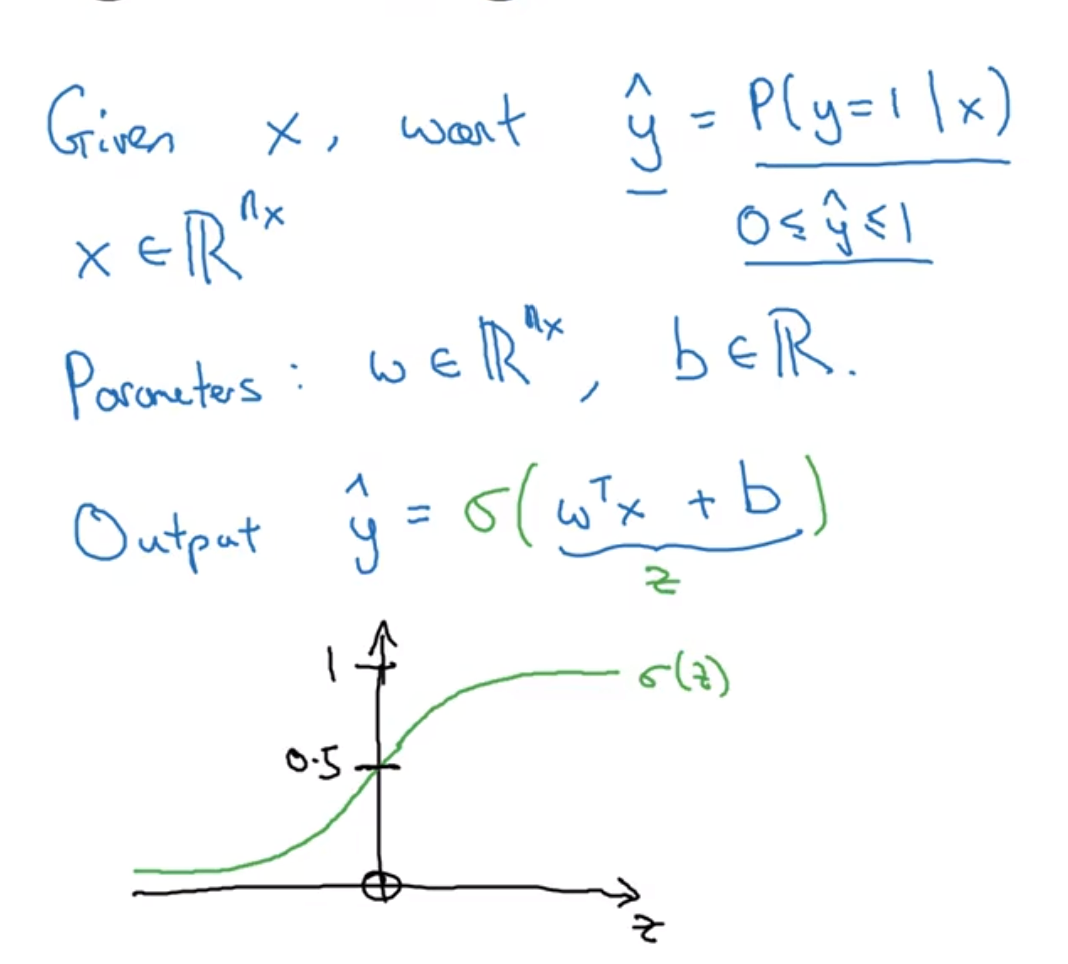 Given x, want ŷ = P(y=1|x)
x ∈ ℝⁿˣ 0 ≤ ŷ ≤ 1
Parameters: w ∈ ℝⁿˣ, b ∈ ℝ.
Output ŷ = σ(wᵀx + b)
z
1 σ(z)
0.5
z